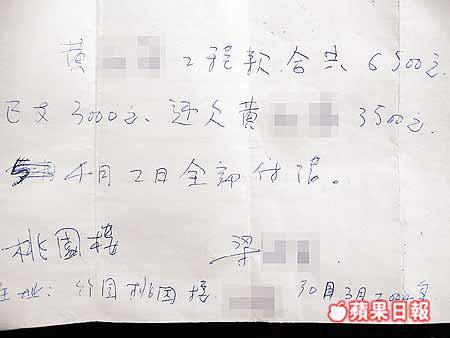 黄 工程款合共6500元
已支3000元,还欠黄 3500元.
4月2日全部付清。
桃園楼 梁
住址:竹园桃园楼 30日3月200年
蘋果日報